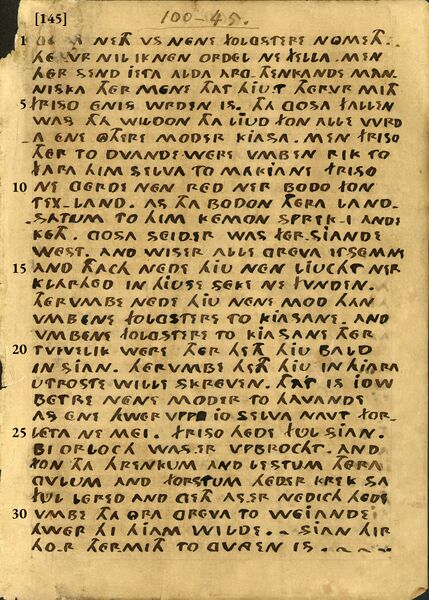 [145]
100-45.
1 NETH VS NENE FOLGSTERE NOMTH.
HE VR NIL IK NEN ORDEL NE FELLA. MEN
HER SEND IETA ALDA ARG THENKANDE MAN-
NISKA THER MENE THAT HIU.T THER VR MITH
5 FRISO ENIS WRDEN IS. THA GOSA FALLEN
WAS THA WILDON THA LIUD FON ALLE WRD
A ENE OTHERE MODER KIASA. MEN FRISO
THER TO DVANDE WERE VMBEN RIK TO
FARA HIM SELVA TO MAKIANE FRISO
10 NE GERDE NEN RED NER BODO FON
TEX-LAND. AS THA BODON THERA LAND-
SATUM TO HIM KEMON SPREK-I ANDE
KETH. GOSA SEID.ER WAS FER.SIANDE
WEST. AND WISER ALLE GREVA ETSEMNE
15 AND THACH NEDE HIU NEN LIUCHT NER
KLARHED IN HIUSE SEKE NE FUNDEN.
THERVMBE NEDE HIU NENE MOD HAN
VMBENE FOLGSTERE TO KIASANE. AND
VMBENE FOLGSTERE TO KIASANE THER
20 TVIVELIK WERE THER HETH HIU BALD
IN SIAN. HERVMBE HETH HIU IN HIARA
UTROSTE WILLE SKREVEN. THAT IS IOW
BETRE NENE MODER TO HAVANDE
AS ENE HWER VPPA IO SELVA NAVT FOR-
25 LETA NE MEI. FRISO HEDE FUL SIAN.
BI ORLOCH WAS.ER VPBROCHT. AND
FON THA HRENKUM AND LESTUM THERA
GULUM AND FORSTUM HEDER KREK SA
FUL LERED AND GETH AS.ER NEDICH HEDE
30 VMBE THA ORA GREVA TO WEIANDE
HWER HI HIAM WILDE. SIAN HIR
HO.R THERMITH TO GVNGEN IS.